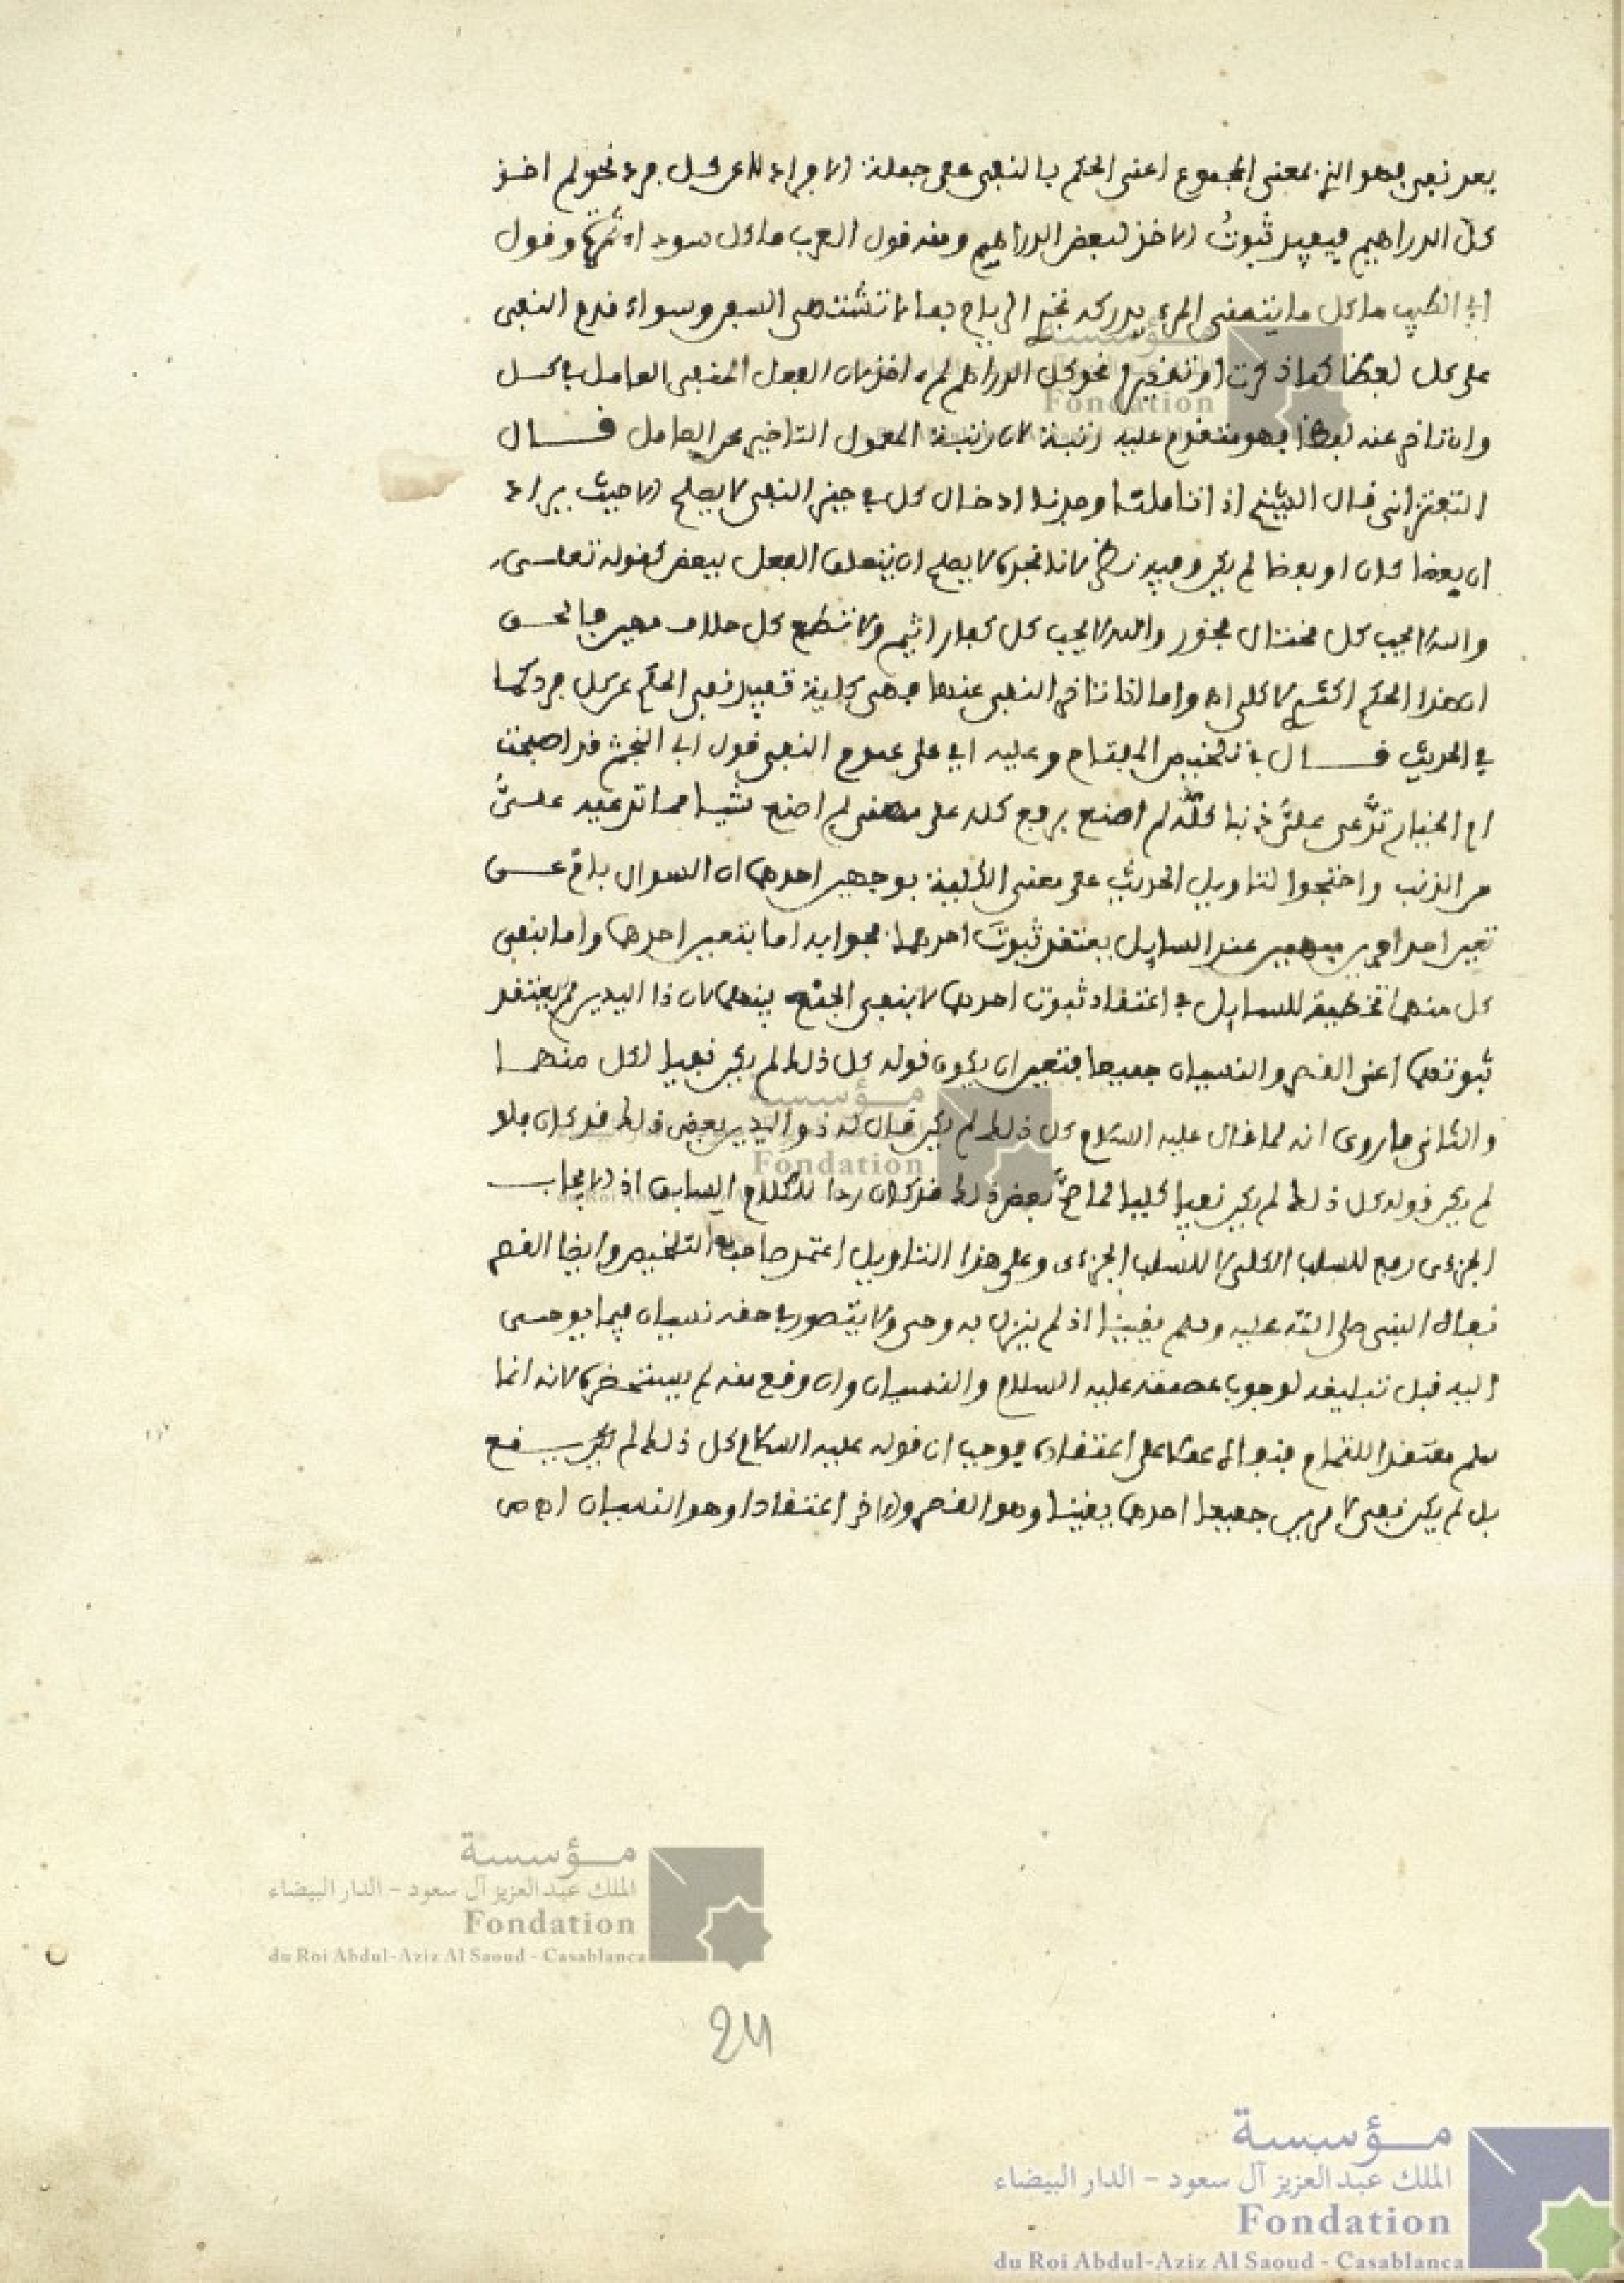 بعد نفي فهو التي بمعنى المجموع اعني الحكم بالنفي على جملة الاجزاء لا على كل جزء نحو لم اخذ
كل الدراهم فيفيد ثبوتُ الاخذ لبعض الدراهم ومنه قول العرب ما كل سوداء تمرة وقول
ابي الطيب ما كل ما يتمنى المرء يدركه تجري الرياح بما لا تشتهي السفن وسواء تقدم النفي
على كل لفظا كما ذكرت او تقديرا نحو كل الدراهم لم ءاخذ لان الفعل المنفي العامل في كل
وان تاخر عنه لفظا فهو متقدم عليه رتبة لان رتبة المعمول التاخير عن العامل قال
التفتزاني قال الشيخ اذا تاملنا وجدنا ادخال كل في حيز النفي لا يصلح الا حيث يراد
ان بعضا كان او بعضا لم يكن وفيه نظر لانا نجده لا يصلح ان يتعلق الفعل ببعض كقوله تعلى
والله لا يحب كل مختال فخور والله لا يحب كل كفار اثيم ولا تطع كل حلاف مهين فالحق
ان هذا الحكم اكثري لا كلي اه واما اذا تاخر النفي عنها فهي كلية تفيد نفي الحكم عن كل فرد كما
في الحديث قال في تلخيص المفتاح وعليه اي على عموم النفي قول ابي النجم قد اصبحت
ام الخيار تدَّعي عليَّ ذنبا كلُّه لم اصنع برفع كله على معنى لم اصنع شيئا مما تدعيه عليَّ
من الذنب واحتجوا لتاويل الحديث على معنى الكلية بوجهين احدهما ان السوال بام عن
تعيين احد امرين مبهمين عند السايل يعتقد ثبوتَ احدهما فجوابه اما بتعيين احدهما واما بنفي
كل منهما تخطية للسايل في اعتقاد ثبوت احدهما لا بنفي الجمع بينهما لان ذا اليدين لم يعتقد
ثبوتهما اعني القصر والنسيان جميعا فتعين ان يكون قوله كل ذلك لم يكن نفيا لكل منهما
والثاني ما روي انه لما قال عليه السلام كل ذلك لم يكن قال له ذو اليدين بعض ذلك قد كان فلو
لم يكن قوله كل ذلك لم يكن نفيا كليا لما صحَّ بعض ذلك قد كان ردا للكلام السابق اذ الايجاب
الجزءي رفع للسلب الكلي لا للسلب الجزءي وعلى هذا التاويل اعتمد صاحب التلخيص وايضا القصر
نفاه النبي صلى الله عليه وسلم يقينا اذ لم ينزل به وحي ولا يتصور في حقه نسيان فيما يوحى
اليه قبل تبليغه لوجوب عصمته عليه السلام والنسيان وان وقع منه لم يستحضره لانه انما
سلم معتقدا للتمام بنفاه عملا على اعتقاده فوجب ان قوله عليه السلام كل ذلك لم يكن يقع
بل لم يكن نفي الامرين جميعا احدهما يقينا وهو القصر والاخر اعتقادا وهو النسيان اه من
مؤسسة
الملك عبد العزيز آل سعود - الدار البيضاء
Fondation
du Roi Abdul-Aziz Al Saoud - Casablanca
مؤسسة
الملك عبد العزيز آل سعود - الدار البيضاء
Fondation
du Roi Abdul-Aziz Al Saoud - Casablanca